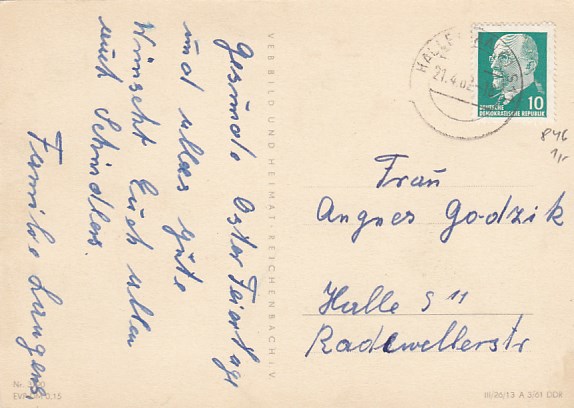 Gesunde Oster Feiertage
und alles gute
Wünscht Euch allen
auch Schindlers.
Familie Langens
VEB BILD UND HEIMAT · REICHENBACH i. V
HALLE
21.4.62
10
DEUTSCHE
DEMOKRATISCHE REPUBLIK
846
1,-
Frau
Angnes Godzik
Halle S 11
Radewellerstr
Nr.
EVP 0,15
III/26/13 A 3/61 DDR